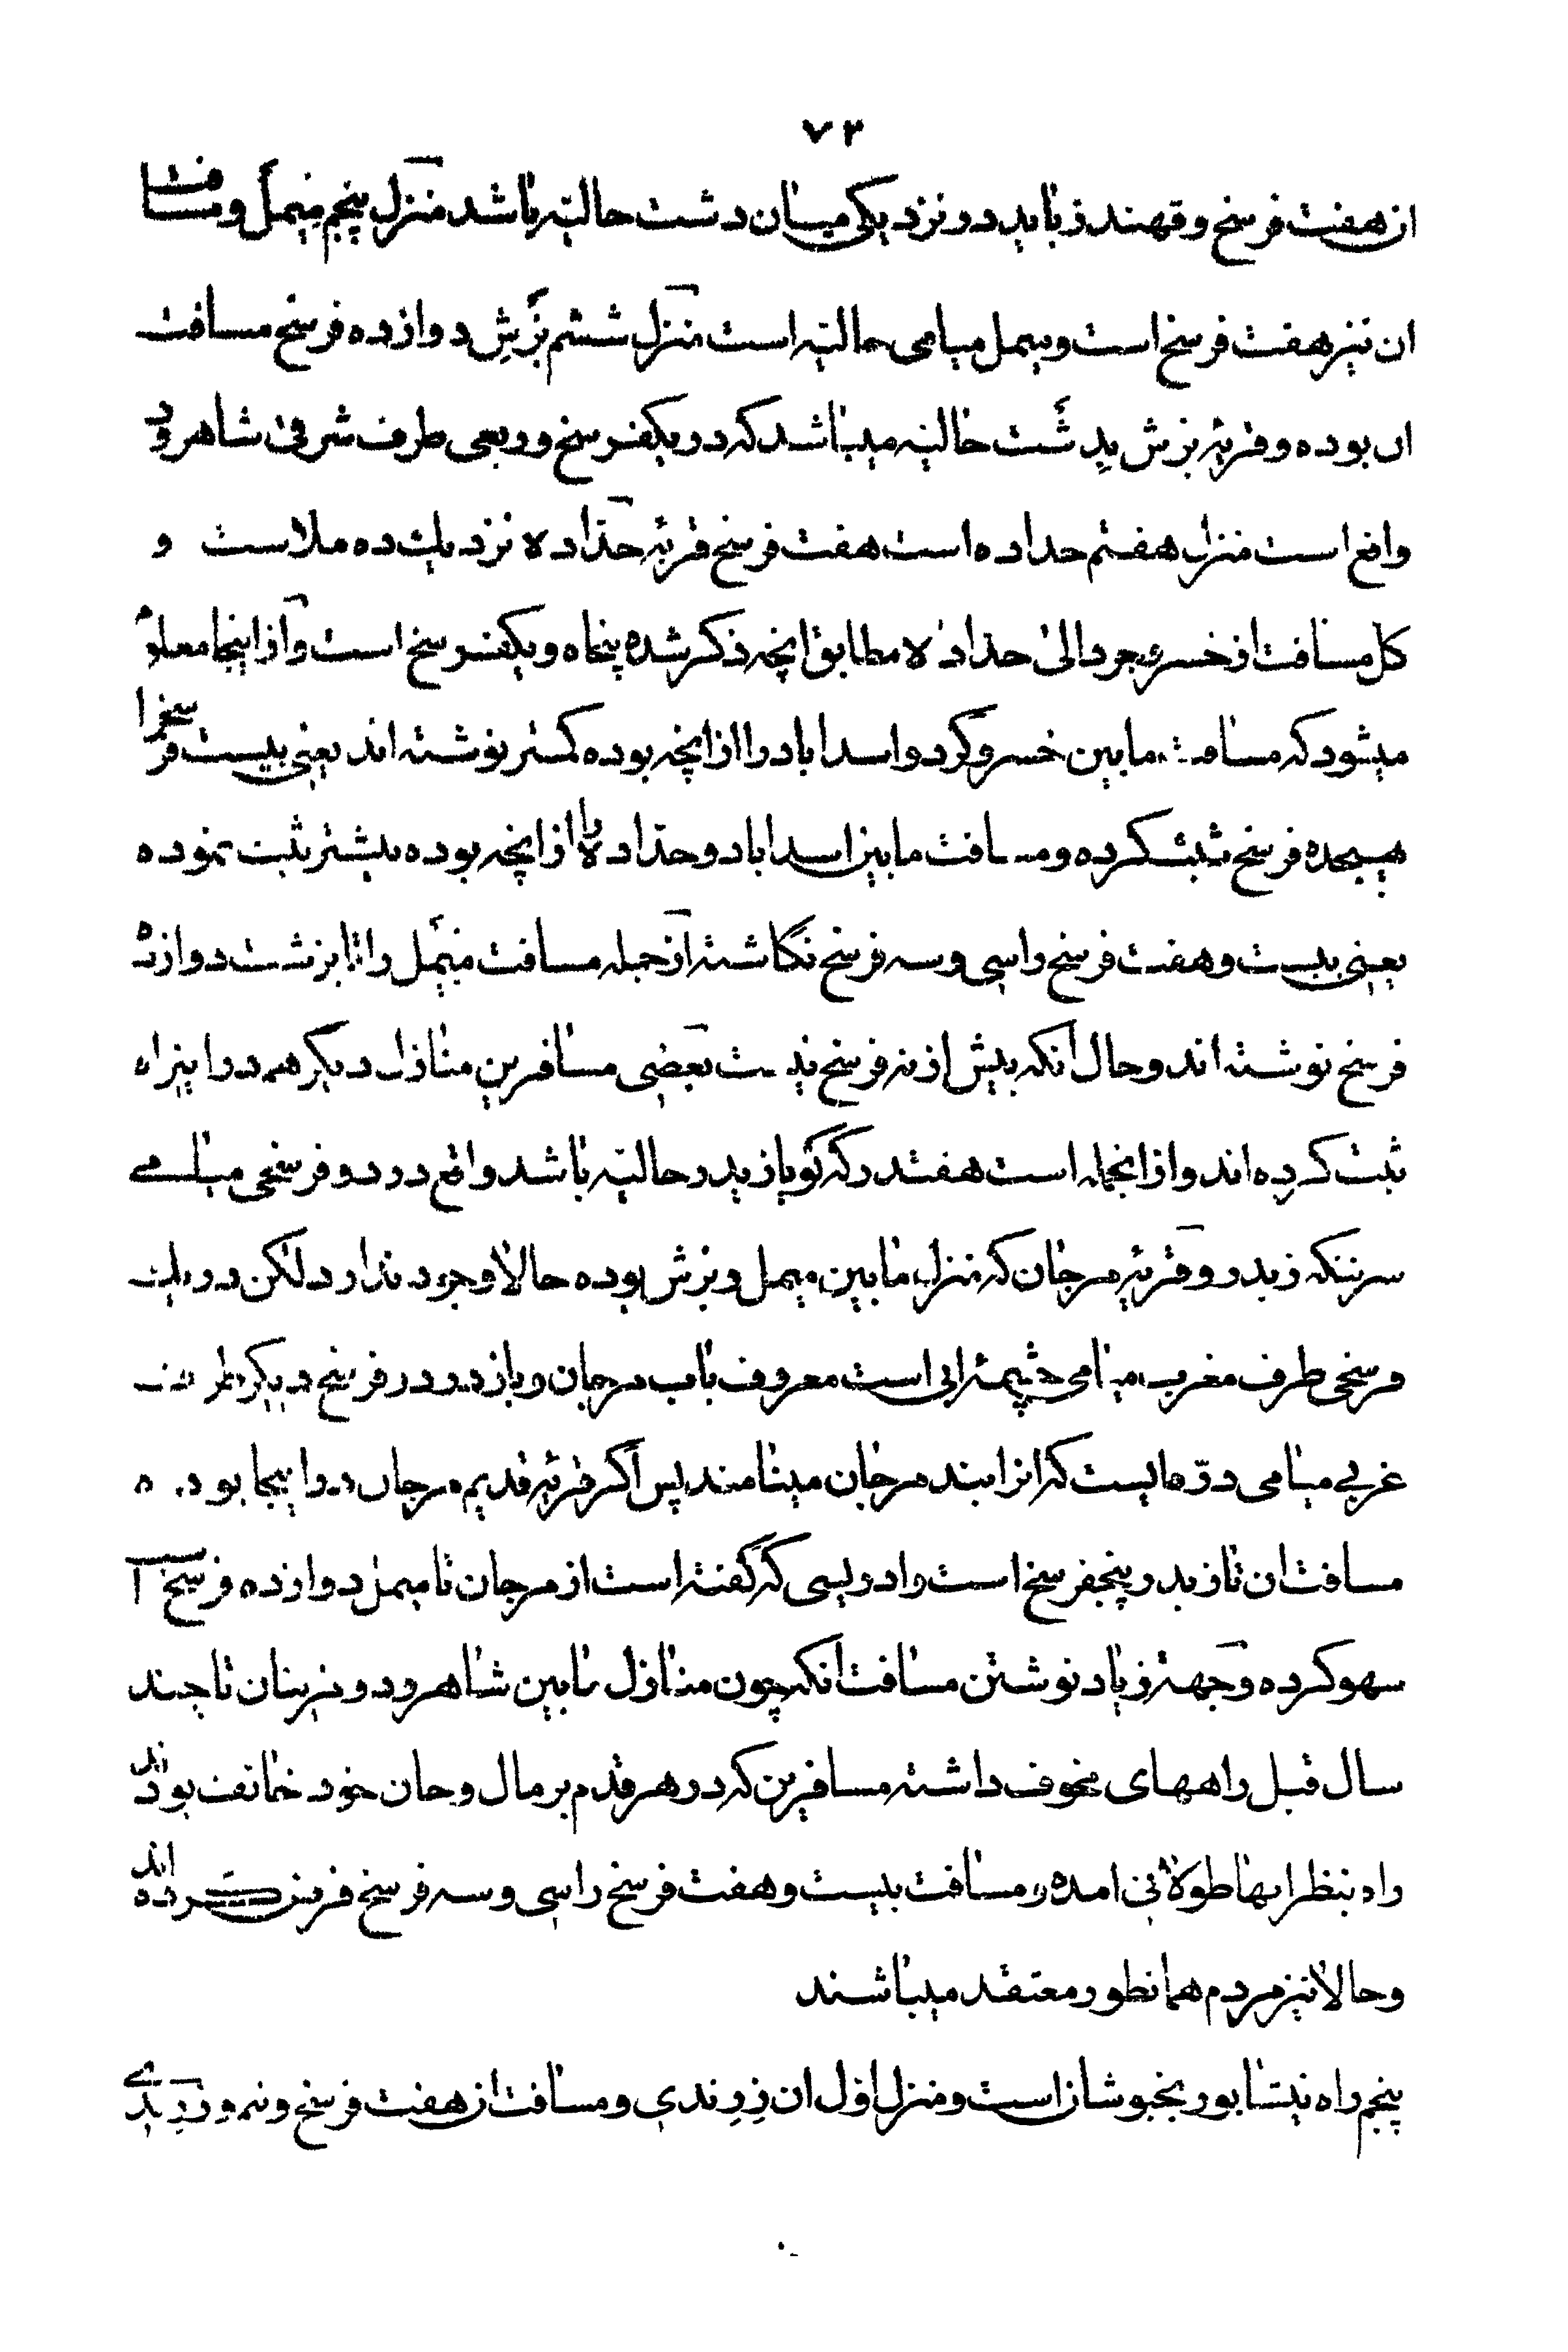 ۷۳
ان هفت فرسخ و قهندز باید در نزدیکی میان دشت حالیه باشد منزل پنجم میمل و مسافت
ان نیز هفت فرسخ است و میمل میامی حالیه است منزل ششم بزش دوازده فرسخ مسافت
ان بوده و قریه بزش بدشت حالیه میباشد که در یکفرسخ و ربعی طرف شرقی شاهرود
واقع است منزل هفتم حداده است هفت فرسخ قریه حداده نزدیك ده ملاست و
کل مسافت از خسروجرد الی حداده مطابق انچه ذکر شده پنجاه و یکفرسخ است و از اینجا معلوم
میشود که مسافت مابین خسروگرد و اسداباد را از انچه بوده کمتر نوشته اند یعنی بیست فرسخ را
هیجده فرسخ ثبت کرده و مسافت مابین اسداباد و حداده را از انچه بوده بیشتر ثبت نموده
یعنی بیست و هفت فرسخ را سی و سه فرسخ نگاشته از جمله مسافت میمل را تا بزشت دوازده
فرسخ نوشته اند و حال انکه بیش از نه فرسخ نیست بعضی مسافرین منازل دیگر هم در این راه
ثبت کرده اند و از انجمله است هفتدر که گویا زیدر حالیه باشد واقع در دو فرسخی میامی
سرتنکه زیدر و قریه مرجان که منزل مابین میمل و بزش بوده حالا وجود ندارد لکن در یك
فرسخی طرف مغرب میامی چشمه ابی است معروف باب مرجان و باز در دو فرسخ دیگر طرف
غربی میامی درّه ایست که انرا بند مرجان مینامند پس اگر قریه قدیم مرجان در اینجا بوده
مسافت ان تا زیدر پنجفرسخ است و ادریسی که گفته است از مرجان تا میمل دوازده فرسخ ا
سهو کرده و جهة زیاد نوشتن مسافت انکه چون منازل مابین شاهرود و مزینان تا چند
سال قبل راههای مخوف داشته مسافرین که در هر قدم بر مال و جان خود خائف بودند
راه بنظر انها طولانی امده و مسافت بیست و هفت فرسخ را سی و سه فرسخ فرض کرده اند
و حالا نیز مردم همانطور معتقد میباشند
پنجم راه نیشابور بخبوشان است و منزل اول ان زرندی و مسافت ان هفت فرسخ و نیم و